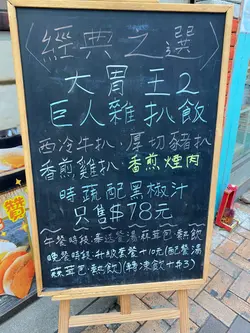 〈經典之選〉
大胃王2
巨人雜扒飯
西冷牛扒、厚切豬扒、
香煎雞扒、香煎煙肉
時蔬配黑椒汁
只售$78元
午餐時段:奉送餐湯、蒜茸包、熱飲
晚餐時段:升級套餐+10元(配餐湯
蒜茸包、熱飲)(轉凍飲+$3)